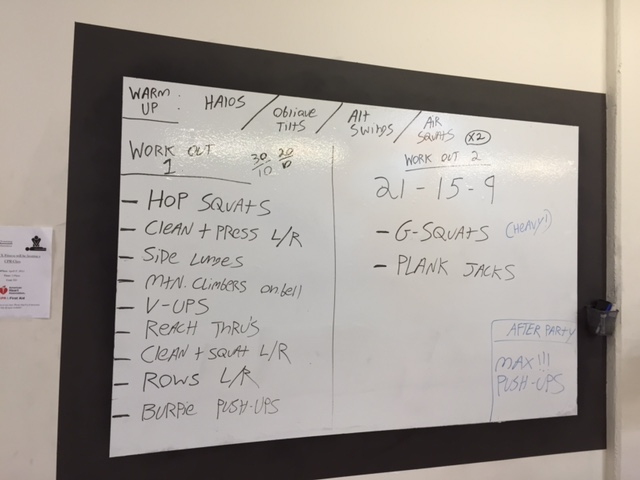 WARM UP : HALOS / OBLIQUE TILTS / ALT SWINGS / AIR SQUATS X2
WORK OUT 1 30/10 20/10
- HOP SQUATS
- CLEAN + PRESS L/R
- SIDE LUNGES
- MTN. CLIMBERS ON BELL
- V-UPS
- REACH THRU'S
- CLEAN + SQUAT L/R
- ROWS L/R
- BURPIE PUSH-UPS
WORK OUT 2
21-15-9
- G-SQUATS (HEAVY!)
- PLANK JACKS
AFTER PARTY
MAX!!!
PUSH-UPS